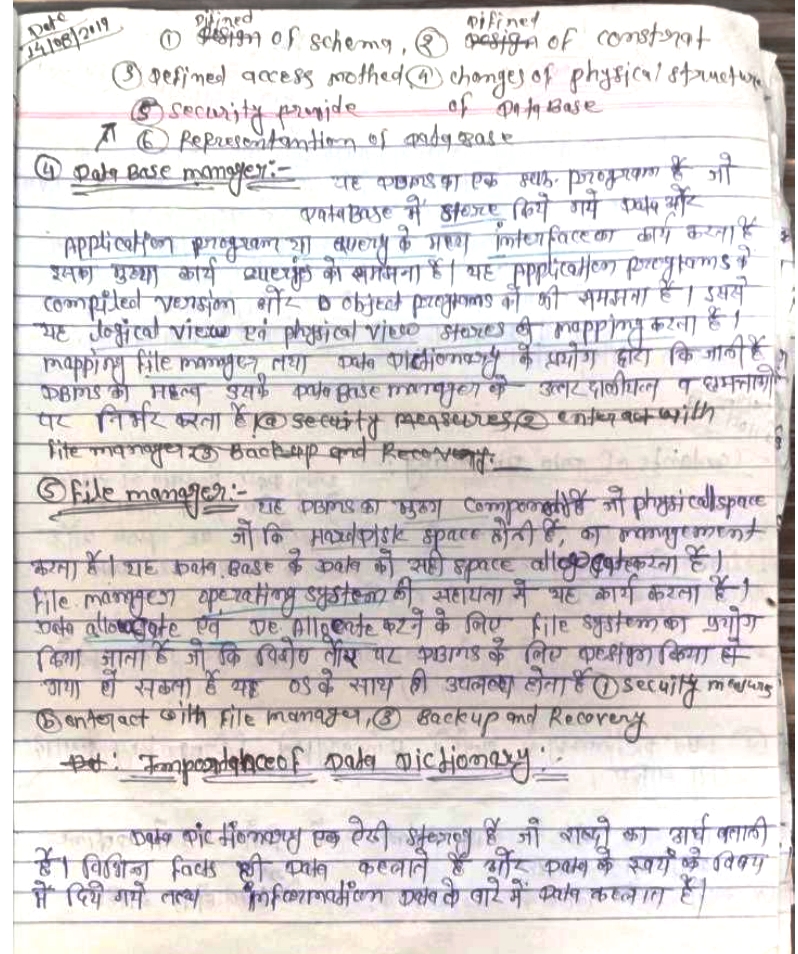 Date
14/08/2019
Difined Difined
① Design of schema, ② Design of constrat
③ Defined access mothed, ④ changes of physical structure
⑤ security provide of DataBase
⑥ Representantion of database
④ Data Base manager:-
यह DBMS का एक program है जो
DataBase में store किये गये Data और
Application program या query के मध्य interface का कार्य करता है
इसका मुख्या कार्य queries को समझना है। यह Application programs के
compiled version और object programs को भी समझता है। इससे
यह logical view एवं physical view stores की mapping करता है।
mapping file manager तथा Data Dictionary के प्रयोग द्वारा कि जाती है
DBMS का महत्व उसके Data Base manager के व क्षमताओं
पर निर्भर करता है। ① security measures, ② enteract with
file manager, ③ Backup and Recovery.
⑤ File manager:-
यह DBMS का मुख्य Component है जो physical space
जो कि HardDisk space होती है, का management
करता है। यह Data Base के Data को सही space allocate करता है।
File manager operating system की सहायता से यह कार्य करता है।
Data allocate एवं De Allocate करने के लिए file system का प्रयोग
किया जाता है जो कि विशेष तौर पर DBMS के लिए design किया हो
गया हो सकता है यह OS के साथ ही उपलब्ध होता है ① security measurs
② enteract with File manager, ③ Backup and Recovery
Impoortance of Data Dictionary:-
Data Dictionary एक ऐसी है जो शब्दों का अर्थ बताती
है। विभिन्न facts ही Data कहलाते हैं और Data के स्वयं के विषय
में दिये गये तथ्य information Data के बारे में Data कहलाते हैं।